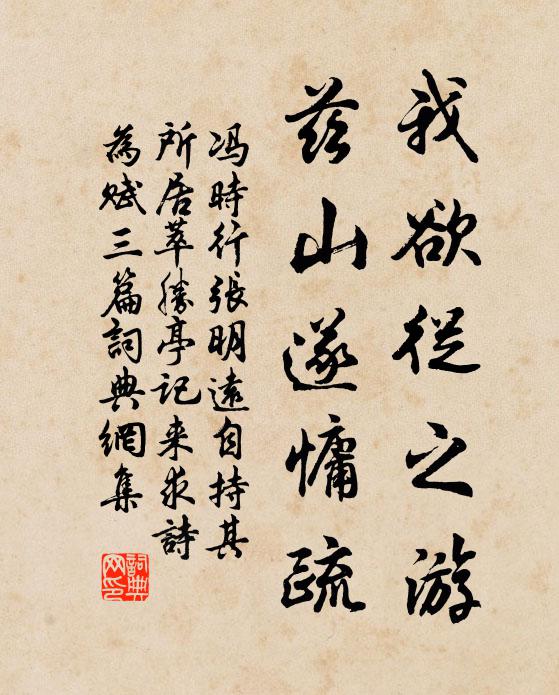 我欲從之游
茲山遂慵疏
馮時行張明遠自持其
所居萃勝亭記来求詩
為賦三篇詞典網集
詞典
网印